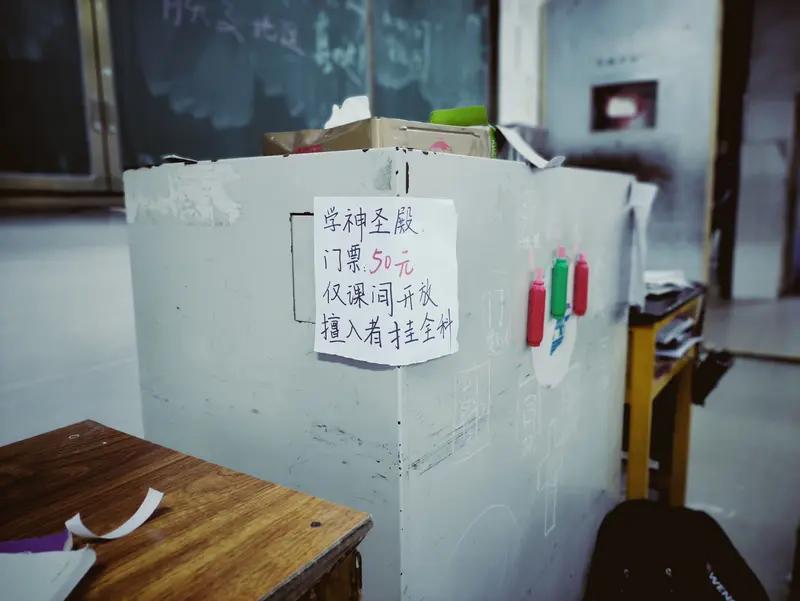 学神圣殿.
门票:50元
仅课间开放
擅入者挂全科
WEN